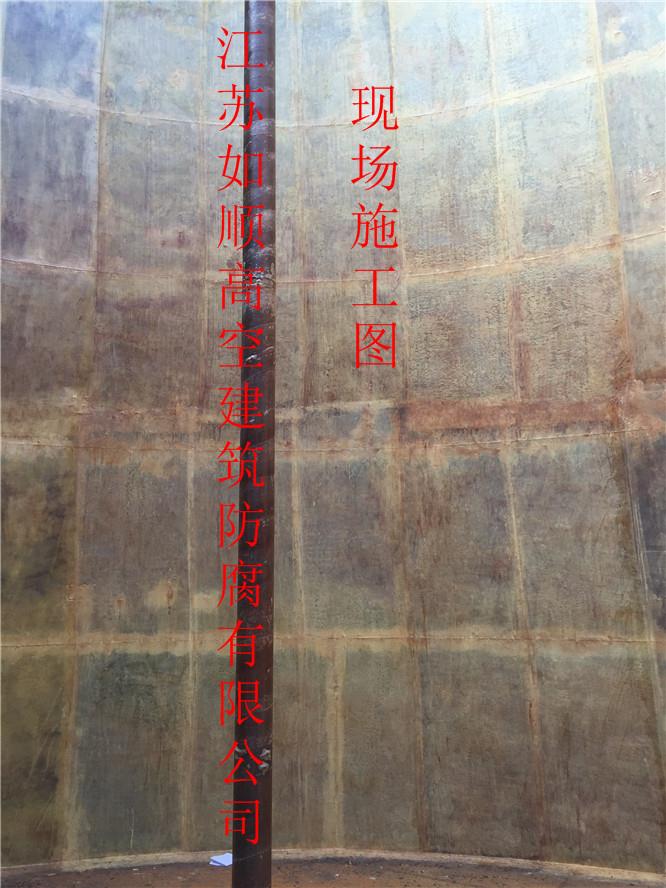 江苏如顺高空建筑防腐有限公司
现场施工图